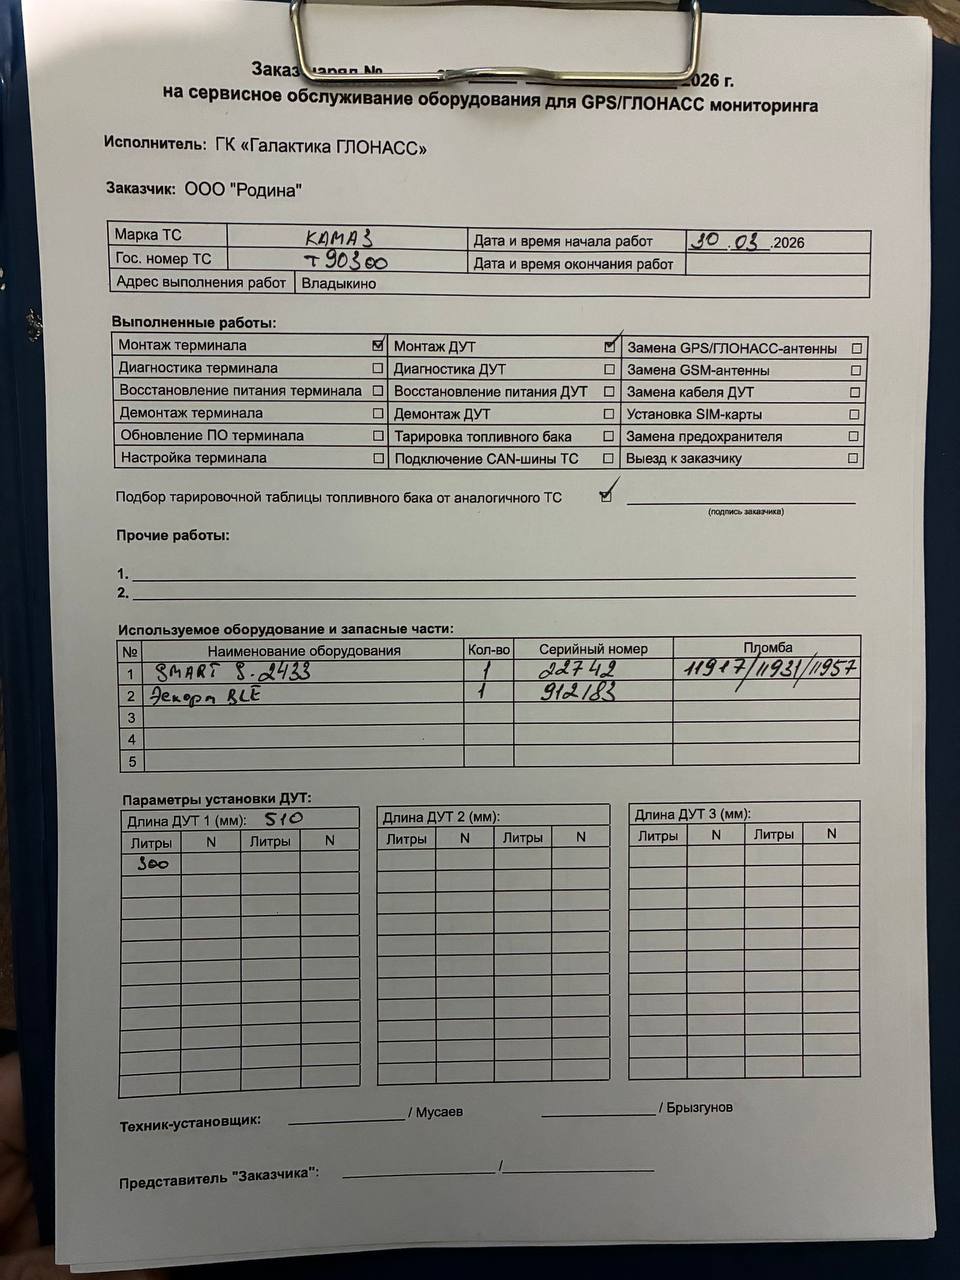 Заказ-наряд №
2026 г.
на сервисное обслуживание оборудования для GPS/ГЛОНАСС мониторинга
Исполнитель: ГК «Галактика ГЛОНАСС»
Заказчик: ООО "Родина"
Марка ТС КАМАЗ Дата и время начала работ 30.03.2026
Гос. номер ТС Т90300 Дата и время окончания работ
Адрес выполнения работ Владыкино
Выполненные работы:
Монтаж терминала ☑ Монтаж ДУТ ☑ Замена GPS/ГЛОНАСС-антенны ☐
Диагностика терминала ☐ Диагностика ДУТ ☐ Замена GSM-антенны ☐
Восстановление питания терминала ☐ Восстановление питания ДУТ ☐ Замена кабеля ДУТ ☐
Демонтаж терминала ☐ Демонтаж ДУТ ☐ Установка SIM-карты ☐
Обновление ПО терминала ☐ Тарировка топливного бака ☐ Замена предохранителя ☐
Настройка терминала ☐ Подключение CAN-шины ТС ☐ Выезд к заказчику ☐
Подбор тарировочной таблицы топливного бака от аналогичного ТС ☑
(подпись заказчика)
Прочие работы:
1.
2.
Используемое оборудование и запасные части:
№ Наименование оборудования Кол-во Серийный номер Пломба
1 SMART S-2433 1 22742 11917/11931/11957
2 Эскорт BLE 1 912183
3
4
5
Параметры установки ДУТ:
Длина ДУТ 1 (мм): 510 Длина ДУТ 2 (мм): Длина ДУТ 3 (мм):
Литры N Литры N Литры N Литры N Литры N Литры N
300
Техник-установщик: / Мусаев / Брызгунов
Представитель "Заказчика": /